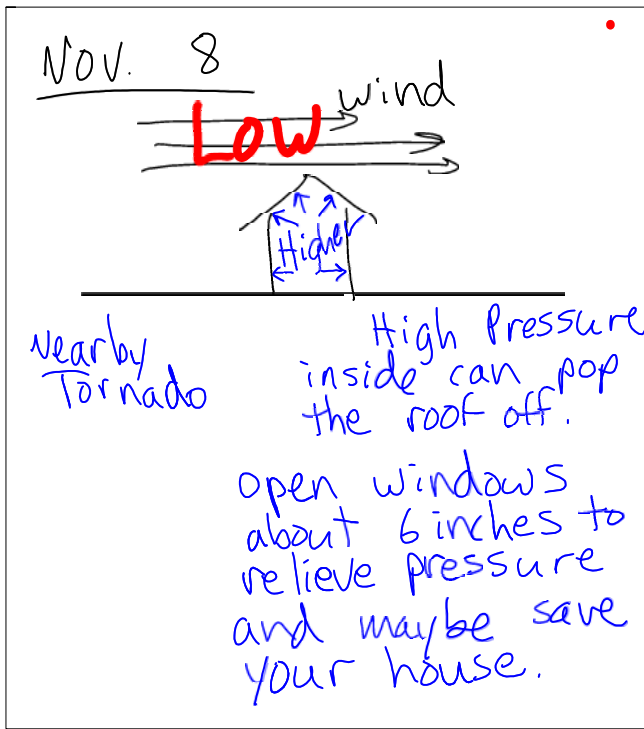 Nov. 8
wind
Low
Higher
Nearby
Tornado
High Pressure
inside can pop
the roof off.
open windows
about 6 inches to
relieve pressure
and maybe save
your house.